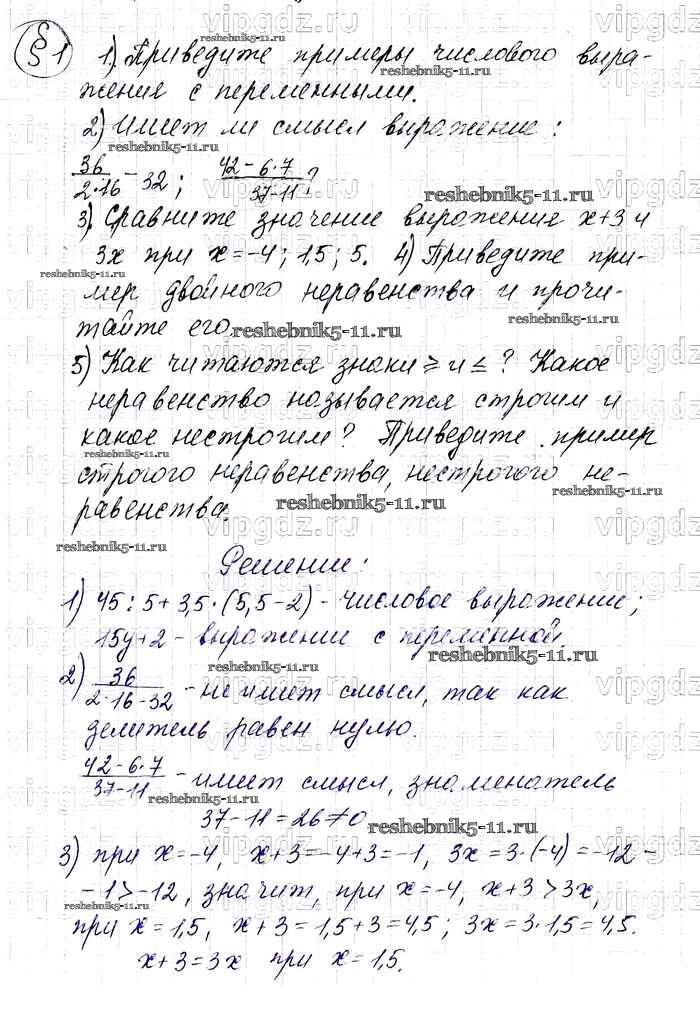 § 1 1) Приведите примеры числового выра-
жения с переменными.
2) Имеет ли смысл выражение:
36/(2·16) - 32; (42-6·7)/(37-11)?
3) Сравните значение выражения x+3 и
3x при x=-4; 1,5; 5. 4) Приведите при-
мер двойного неравенства и прочи-
тайте его.
5) Как читаются знаки ≥ и ≤? Какое
неравенство называется строгим и
какое нестрогим? Приведите пример
строгого неравенства, нестрогого не-
равенства.
Решение:
1) 45:5+3,5·(5,5-2) - числовое выражение;
15y+2 - выражении с переменной
2) 36/(2·16-32) - не имеет смысл, так как
делитель равен нулю.
(42-6·7)/(37-11) - имеет смысл, знаменатель
37-11=26≠0
3) при x=-4, x+3=-4+3=-1, 3x=3·(-4)=-12-
-1>-12, значит, при x=-4, x+3>3x,
при x=1,5, x+3=1,5+3=4,5; 3x=3·1,5=4,5.
x+3=3x при x=1,5.
reshebnik5-11.ru
vipgdz.ru